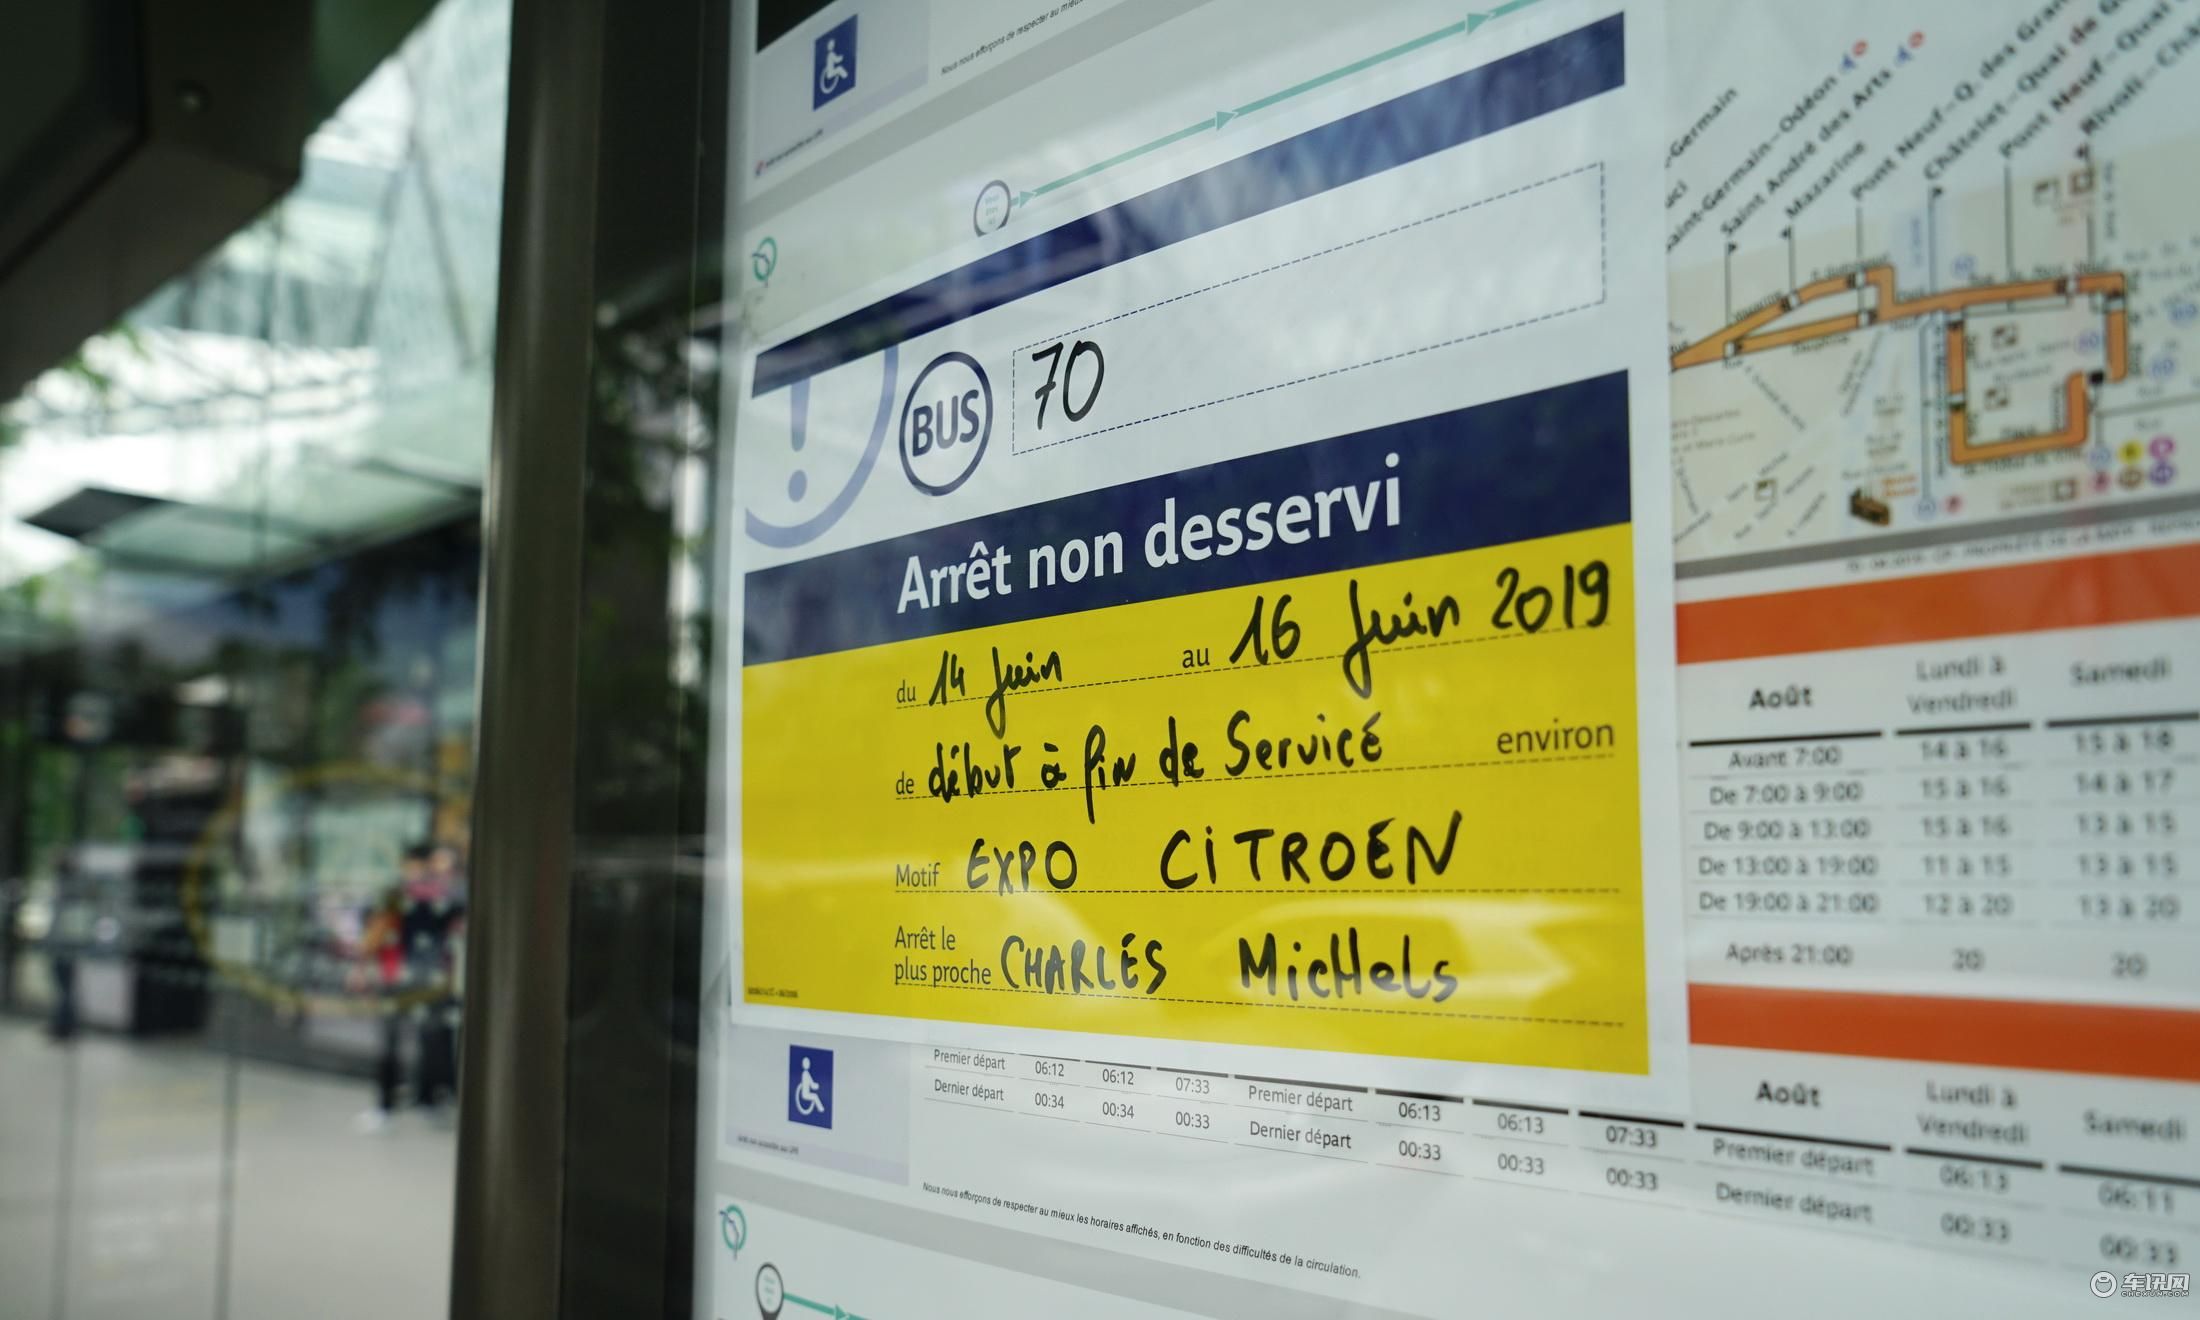 Nous nous efforçons de respecter au mieux
BUS 70
Arrêt non desservi
du 14 Juin au 16 Juin 2019
de début à fin de Service environ
Motif EXPO CITROEN
Arrêt le
plus proche CHARLES MicHels
-Germain
Saint-Germain-Odéon
Saint André des Arts
Mazarine
Pont Neuf-Q. des Gran
Châtelet-Quai de G
Pont Neuf-Quai
Rivoli-Châ
Août Lundi à Vendredi Samedi
Avant 7:00 14 à 16 15 à 18
De 7:00 à 9:00 15 à 16 14 à 17
De 9:00 à 13:00 15 à 16 13 à 15
De 13:00 à 19:00 11 à 15 13 à 15
De 19:00 à 21:00 12 à 20 13 à 20
Après 21:00 20 20
Août Lundi à Vendredi Samedi
Premier départ 06:12 06:12 07:33 Premier départ 06:13 06:13 07:33 Premier départ 06:13 06:11
Dernier départ 00:34 00:34 00:33 Dernier départ 00:33 00:33 00:33 Dernier départ 00:33 00:33
Nous nous efforçons de respecter au mieux les horaires affichés, en fonction des difficultés de la circulation.
车讯网
CHEXUN.COM